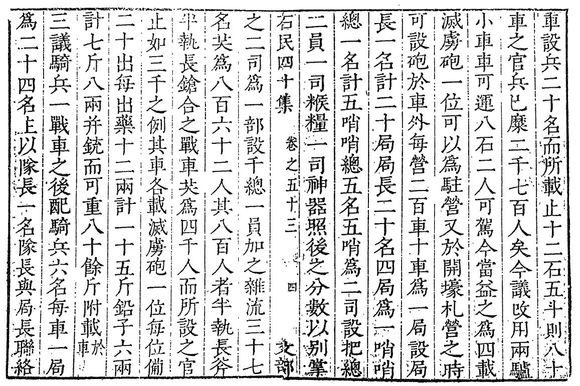 車設兵二十名而所載止十二石五斗則八十
車之官兵已糜二千七百人矣今議改用兩驢
小車車可運八石二人可駕今當益之爲四載
滅虜砲一位可以爲駐營又於開壕札營之時
可設砲於車外每營二百車十車爲一局設局
長一名計二十局局長二十名四局爲一哨哨
總一名計五哨哨總五名五哨爲二司設把總
二員一司糇糧一司神器照後之分數以別掌
石民四十集 卷之五十三 四 文部
之二司爲一部設千總一員加之雜流三十七
名共爲八百六十二人其八百人者半執長斧
半執長鎗合之戰車共爲四千人而所設之官
止如三千之例其車各載滅虜砲一位每位備
二十出每出藥十二兩計一十五斤鉛子六兩
計七斤八兩并銃而可重八十餘斤附載於車
三議騎兵一戰車之後配騎兵六名每車一局
爲二十四名上以隊長一名隊長與局長聯絡